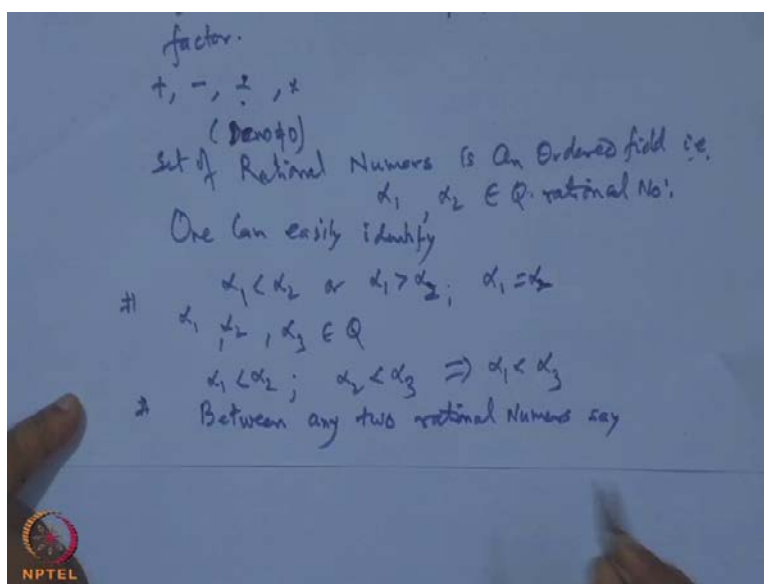 factor.
+, -, ÷, ×
(Deno≠0)
Set of Rational Numers is An Ordered field i.e.
α₁, α₂ ∈ Q. rational No:
One Can easily identify
α₁ < α₂ or α₁ > α₂; α₁ = α₂
α₁, α₂, α₃ ∈ Q
α₁ < α₂; α₂ < α₃ ⇒ α₁ < α₃
Between any two rational Numers say
NPTEL